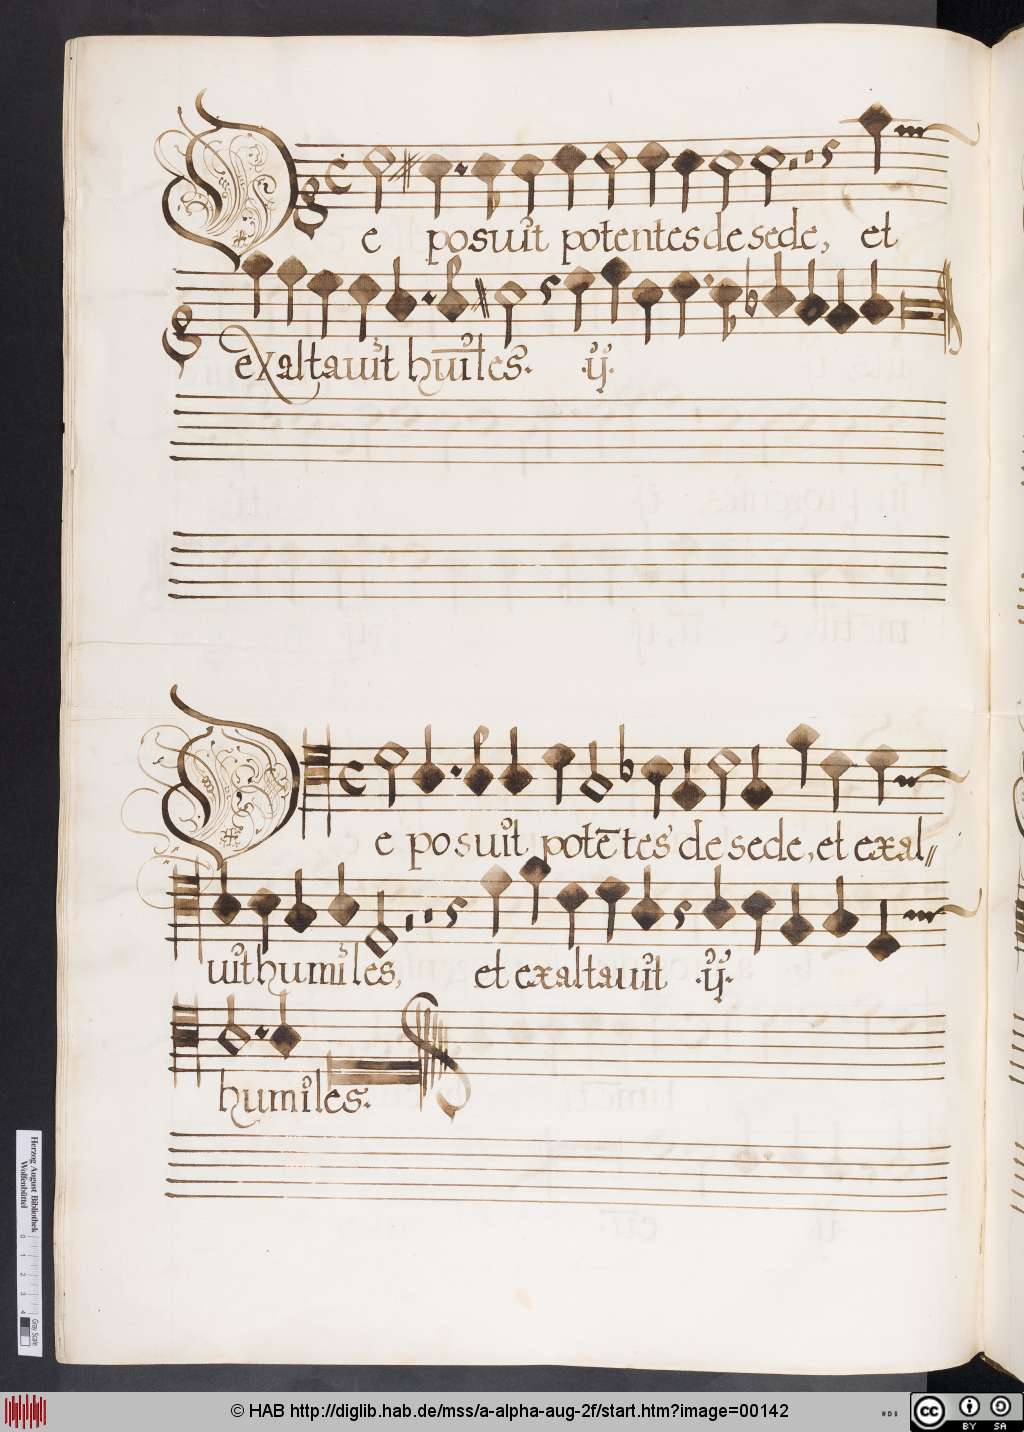 De posuit potentes de sede, et
exaltauit humiles. .ij.
De posuit potētes de sede, et exal//
uit humiles, et exaltauit .ij.
humiles.
Herzog August Bibliothek
Wolfenbüttel
0 1 2 3 4
Gray Scale
© HAB http://diglib.hab.de/mss/a-alpha-aug-2f/start.htm?image=00142
cc BY SA